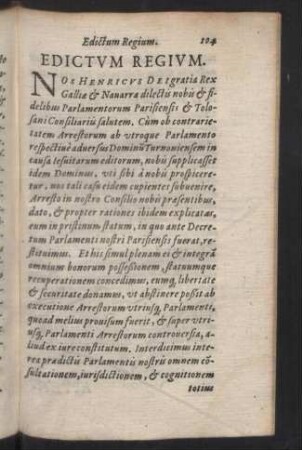 Edictum Regium. 104
EDICTVM REGIVM.
NOS HENRICVS DEI gratia Rex
Galliæ & Nauarræ dilectis nobis & fi-
delibus Parlamentorum Parisiensis & Tolo-
sani Consiliariis salutem. Cùm ob contrarie-
tatem Arrestorum ab vtroque Parlamento
respectiuè aduersus Dominũ Turnoniensem in
causa Iesuitarum editorum, nobis supplicasset
idem Dominus, vti sibi à nobis prospicere-
tur, nos tali casu eidem cupientes subuenire,
Arresto in nostro Consilio nobis præsentibus,
dato, & propter rationes ibidem explicatas,
eum in pristinum statum, in quo ante Decre-
tum Parlamenti nostri Parisiensis fuerat, re-
stituimus. Et his simul plenam ei & integrã
omnium bonorum possessionem, statuumque
recuperationem concedimus, eumq; libertate
& securitate donamus, vt abstinere possit ab
executione Arrestorum vtriusq; Parlamenti,
quoad melius prouisum fuerit, & super vtri-
usq; Parlamenti Arrestorum controuersia, a-
liud ex iure constitutum. Interdicimus inte-
rea prædictis Parlamentis nostris omnem cõ-
sultationem, iurisdictionem, & cognitionem
totius